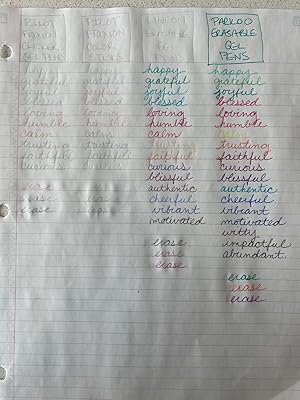 PILOT
FRIXION
CLICKER
GEL PENS
happy
grateful
joyful
blessed
loving
humble
calm
trusting
faithful
curious
erase
erase
erase
PILOT
FRIXION
COLOR
STICKS
happy
grateful
joyful
blessed
loving
humble
calm
trusting
faithful
curious
erase
erase
erase
ERASABLE
happy
grateful
joyful
blessed
loving
humble
calm
trusting
faithful
curious
blissful
authentic
cheerful
vibrant
motivated
erase
erase
erase
PARKOO
ERASABLE
GEL
PENS
happy
grateful
joyful
blessed
loving
humble
calm
trusting
faithful
curious
blissful
authentic
cheerful
vibrant
motivated
witty
impactful
abundant.
erase
erase
erase